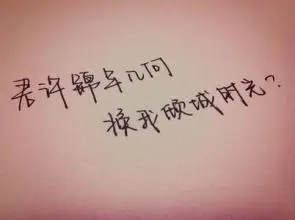 君许锦年几何
换我倾城时光？